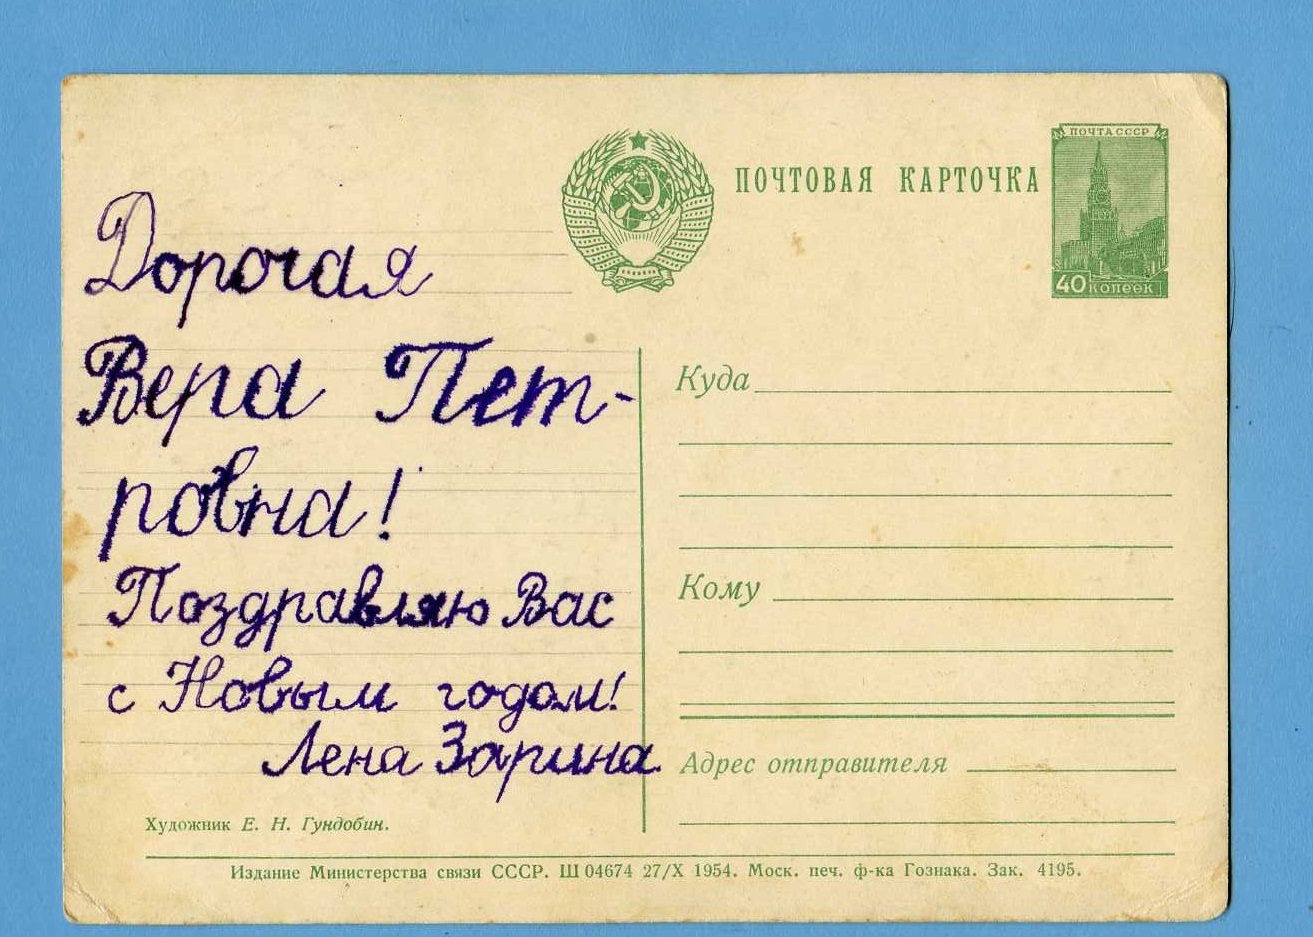 ПОЧТОВАЯ КАРТОЧКА
ПОЧТА СССР
40 копеек
Дорогая
Вера Пет-
ровна!
Поздравляю Вас
с Новым годом!
Лена Зарина
Куда
Кому
Адрес отправителя
Художник Е. Н. Гундобин.
Издание Министерства связи СССР. Ш 04674 27/X 1954. Моск. печ. ф-ка Гознака. Зак. 4195.